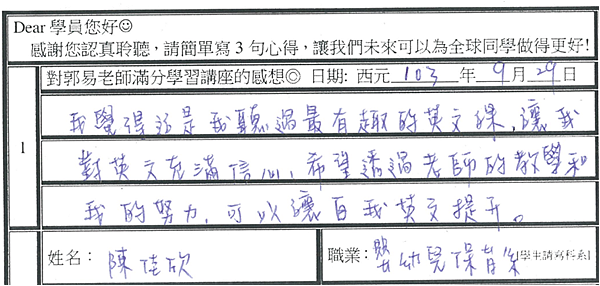 Dear 學員您好☺
感謝您認真聆聽，請簡單寫 3 句心得，讓我們未來可以為全球同學做得更好!
對郭易老師滿分學習講座的感想◎ 日期: 西元 103 年 9 月 29 日
1
我覺得這是我聽過最有趣的英文課，讓我
對英文充滿信心，希望透過老師的教學和
我的努力，可以讓自我英文提升。
姓名： 陳佳欣 職業： 學 幼兒保育系 [學生請寫科系]